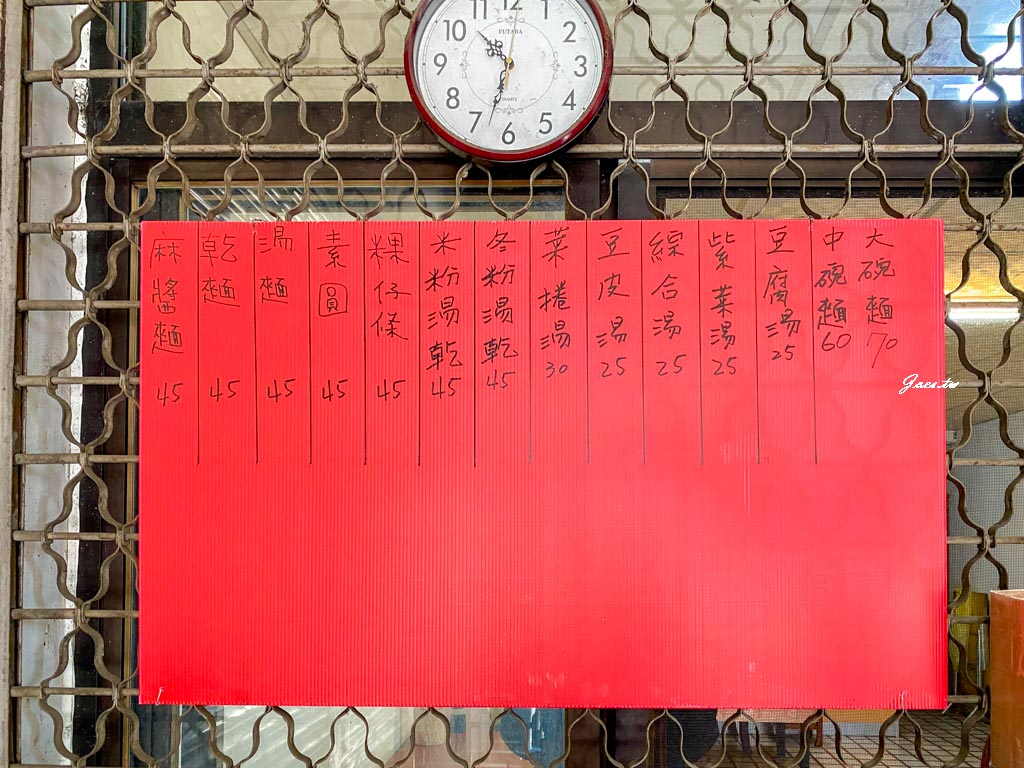 11 12 1
10 2
FUTABA
9 3
8 QUARTZ 4
7 6 5
大碗麵 70
中碗麵 60
豆腐湯 25
紫菜湯 25
綜合湯 25
豆皮湯 25
菜捲湯 30
冬粉湯乾 45
米粉湯乾 45
粿仔條 45
素圓 45
湯麵 45
乾麵 45
麻醬麵 45
Jaes.tw